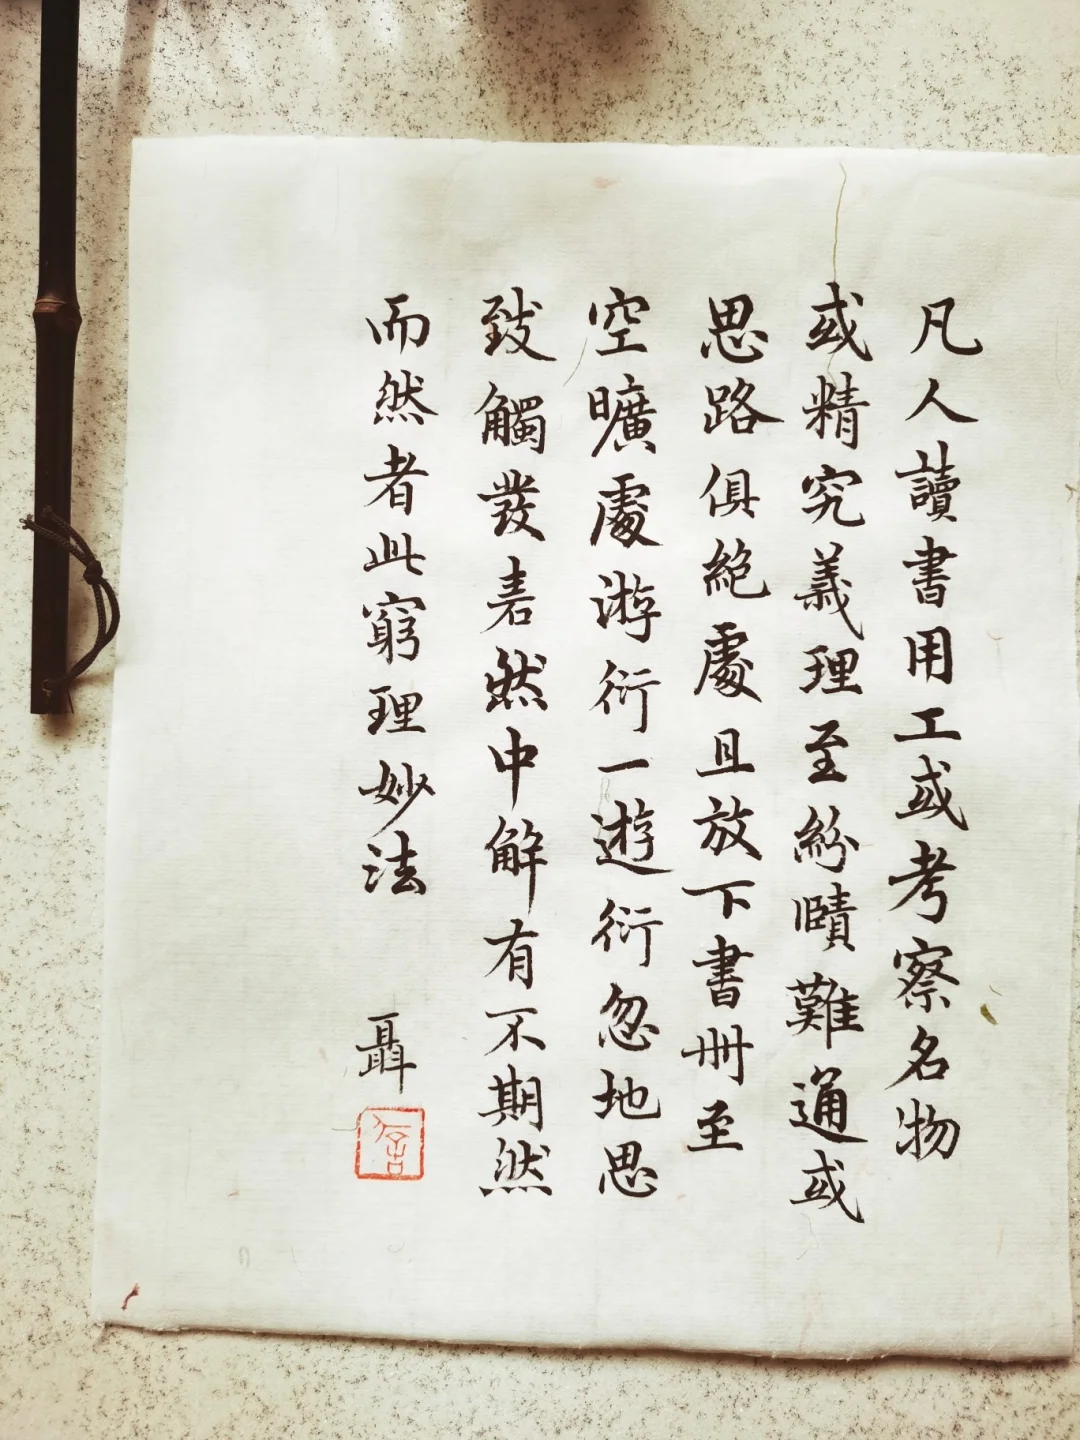 凡人讀書用工或考察名物
或精究義理至紛賾難通或
思路俱絕處且放下書冊至
空曠處游衍一遊衍忽地思
致觸發砉然中解有不期然
而然者此窮理妙法
聶
信